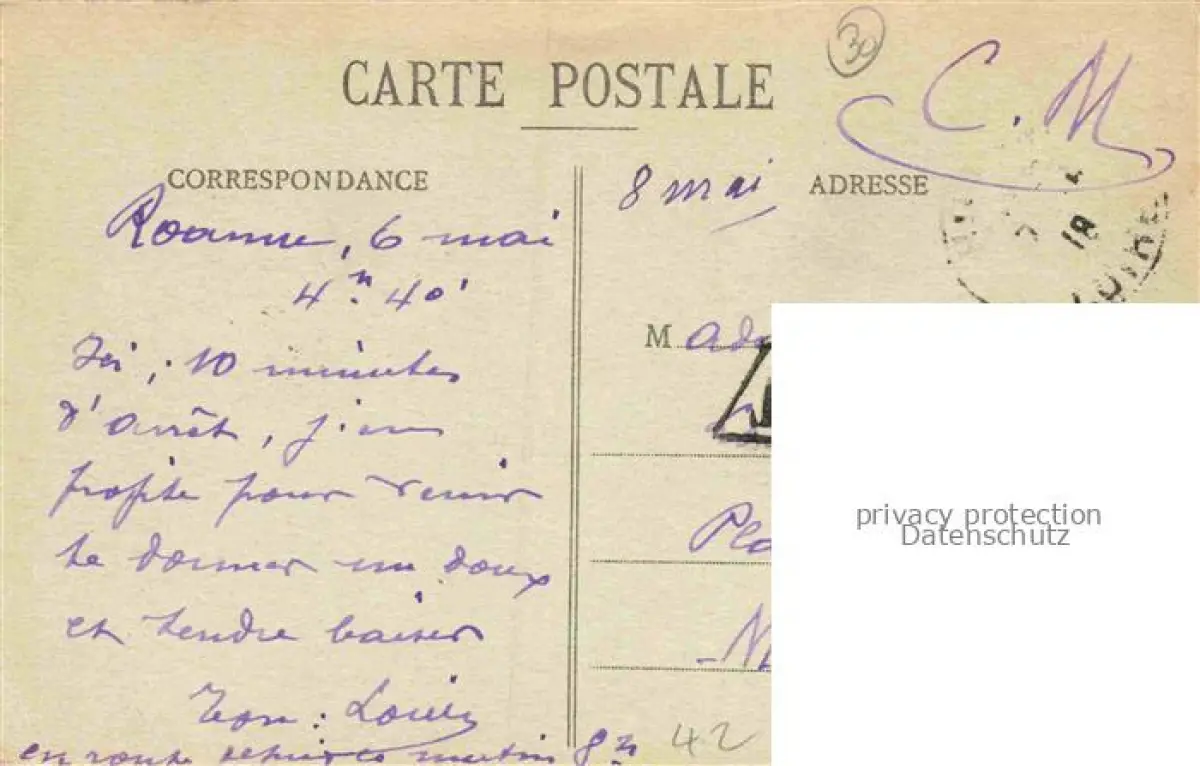 30
C. M
CARTE POSTALE
CORRESPONDANCE
8 mai
ADRESSE
Roanne, 6 mai
4h 40'
Ici, 10 minutes
d'arrêt, j'en
profite pour venir
te donner un doux
et tendre baiser
Ton: Louis
en route depuis ce matin 8h
M
18
LOIRE
Pla
42
privacy protection
Datenschutz